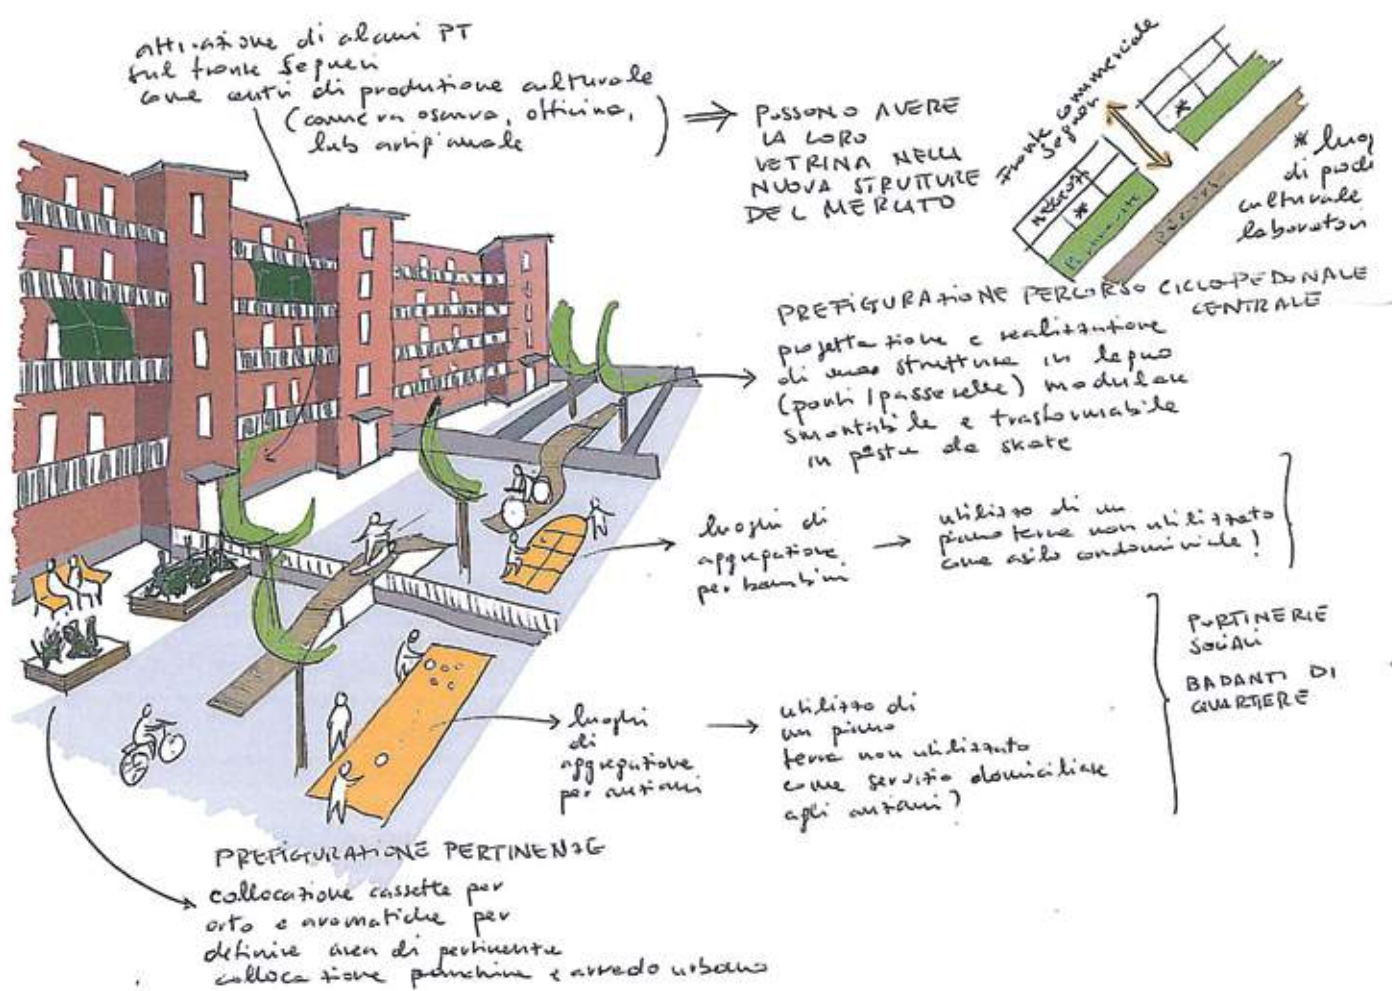 attivazione di alcuni PT
sul fronte Segneri
come centri di produzione culturale
(camera oscura, officina,
lab artigianale
)
POSSONO AVERE
LA LORO
VETRINA NELLA
NUOVA STRUTTURE
DEL MERCATO
Fronte commerciale
Segneri
NEGOZI
*
*
Pertinenze
percorso
* luog
di prod
culturale
laboratori
PREFIGURAZIONE PERCORSO CICLOPEDONALE
CENTRALE
progettazione e realizzazione
di una struttura in legno
(ponti/passerelle) modulare
smontabile e trasformabile
in piste da skate
luoghi di
aggregazione
per bambini
utilizzo di un
piano terra non utilizzato
come asilo condominiale?
luoghi
di
aggregazione
per anziani
utilizzo di
un piano
terra non utilizzato
come servizio domiciliare
agli anziani?
PORTINERIE
SOCIALI
BADANTI DI
QUARTIERE
PREFIGURAZIONE PERTINENZE
collocazione cassette per
orto e aromatiche per
definire area di pertinenza
collocazione panchine e arredo urbano